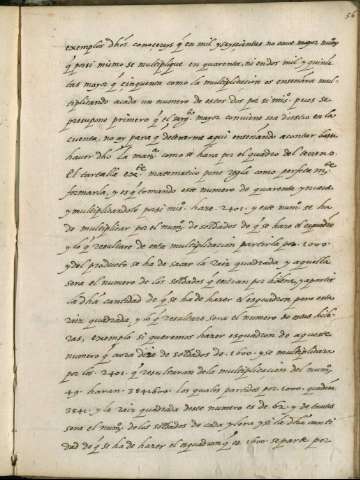 56
exemplos dhõs conosereys q̃ en mil y seyscientos no ave mayor num̃o
q̃ por si mismo se multiplique en quarenta, ni en dos mil y quinien
tos mayor q̃ cinquenta como la multiplicacion os enseñara mul
tiplicando a cada un numero de estos dos por si mis.º pues se
presupone primero q̃ el sarg.to mayor conviene sea diestro en la
cuenta, no ay para q̃ detenerme aqui enseñando a contar
haver dhõ la man.ra como se hara por el quadro del terreno.
El tartalla ex.te matematico pone regla como perfeta m.te
formarla, y es q̃ tomando este numero de quarenta y nueve
y multiplicandolo por si mis.º haze 2401. y este num.º se ha
de multiplicar por el num.º de soldados de q̃ se haze el esquadron
y lo q̃ resultare de esta multiplicacion partirla por 1000.
y del producto se ha de sacar la raiz quadrada y aquella
sera el numero de los soldados q̃ entran por hilera, y a partir
la dhã cantidad de q̃ se ha de hazer el esquadron por esta
raiz quadrada, y lo q̃ resultare sera el numero de estas hile
ras, exemplo si queremos hazer esquadron de aqueste
numero q̃ avia dhõ de soldados de 1600. y se multiplicara
por los 2401. q̃ resultaron de la multiplicacion del num.º
49. haran 3841600. los quales partidos por 1000. quedan
3841. y la raiz quadrada deste numero es de 62. y de tantos
sera el num.º de los soldados de cada ylera y si la dhã canti
dad de q̃ se ha de hazer el esquadron q̃ es 1600. se parte por